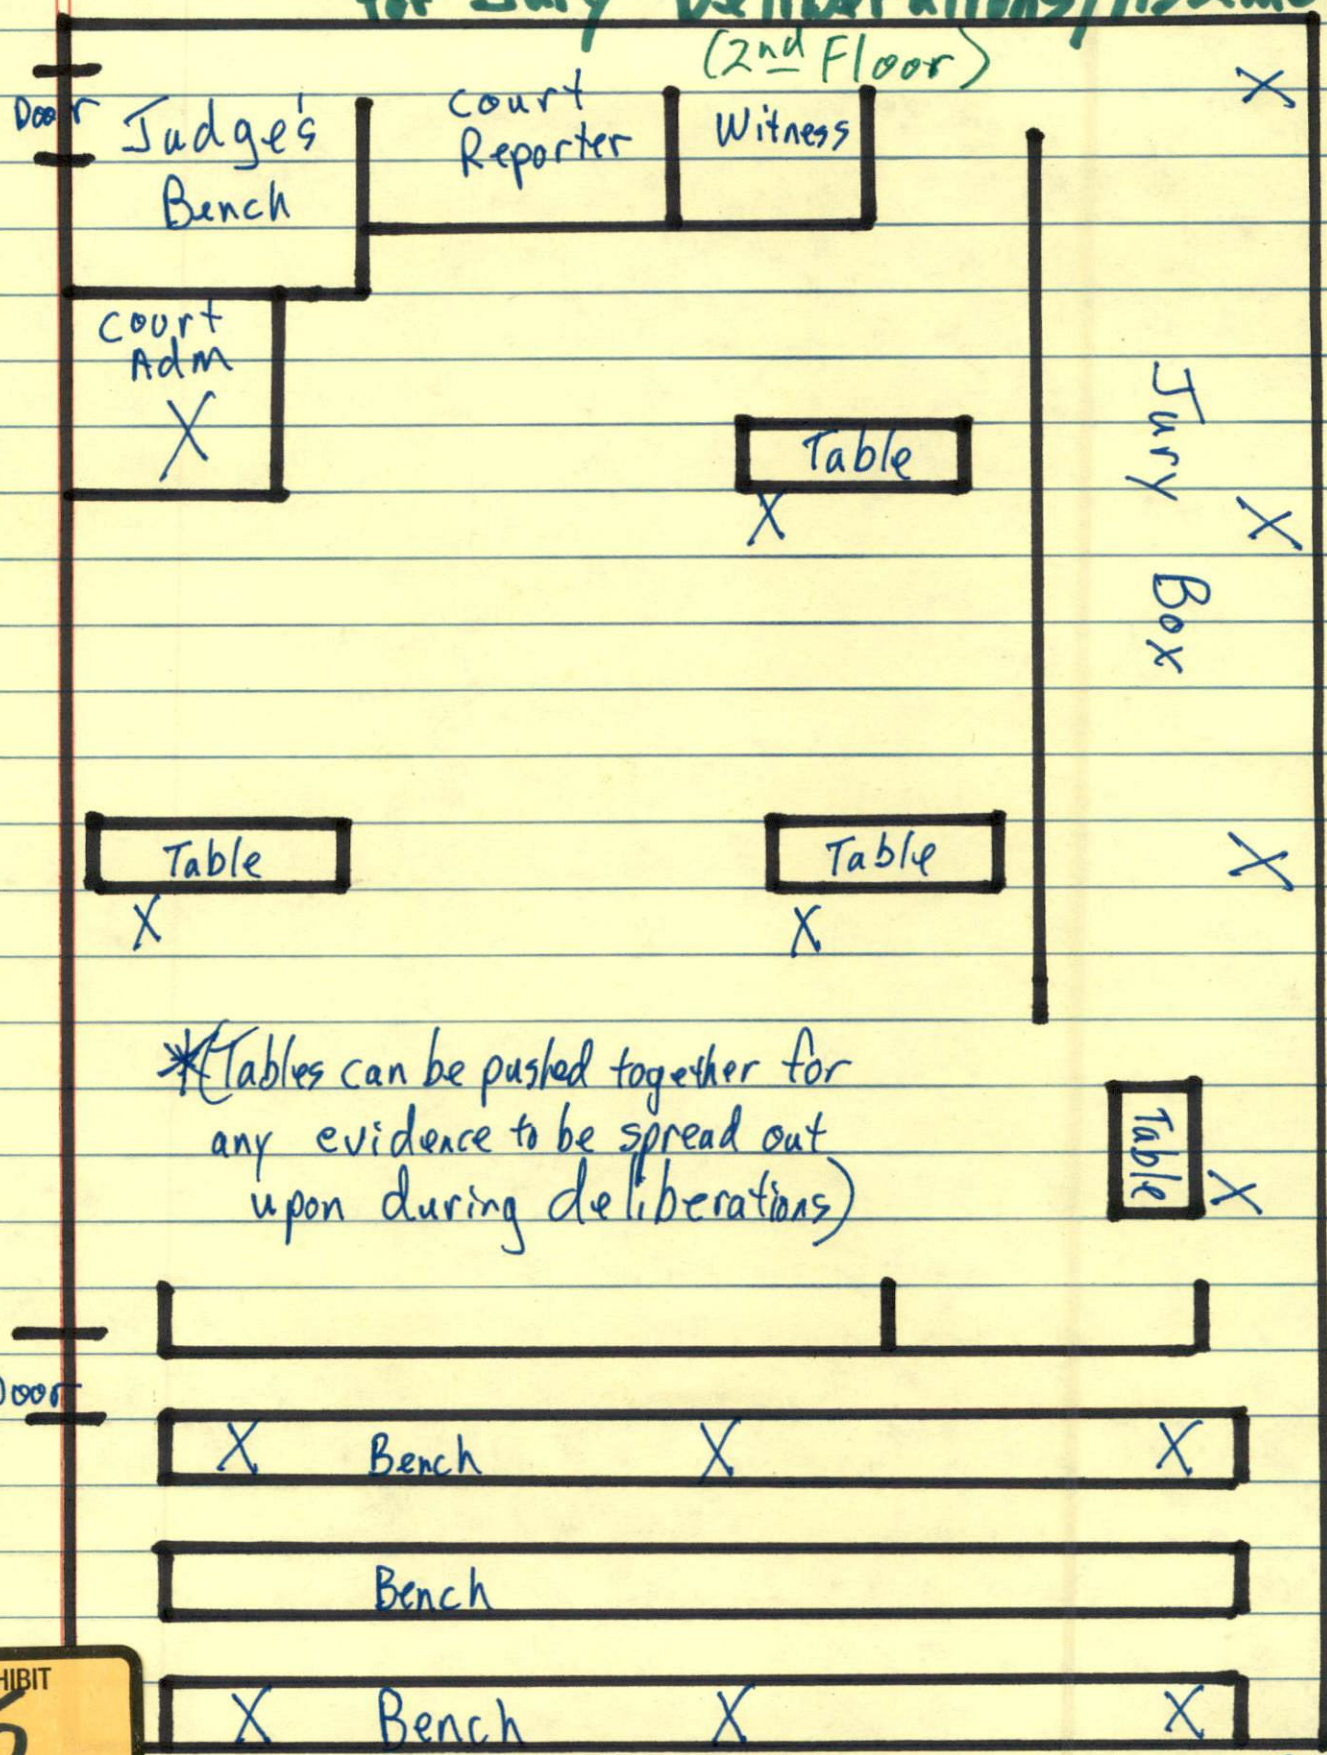 for Jury Deliberations
(2nd Floor)
X
Door
Judge's
Bench
Court
Reporter
Witness
Court
Adm
X
Table
X
Jury Box
X
Table
X
Table
X
X
*(Tables can be pushed together for
any evidence to be spread out
upon during deliberations)
Table
X
Door
X Bench X X
Bench
X Bench X X
HIBIT
6